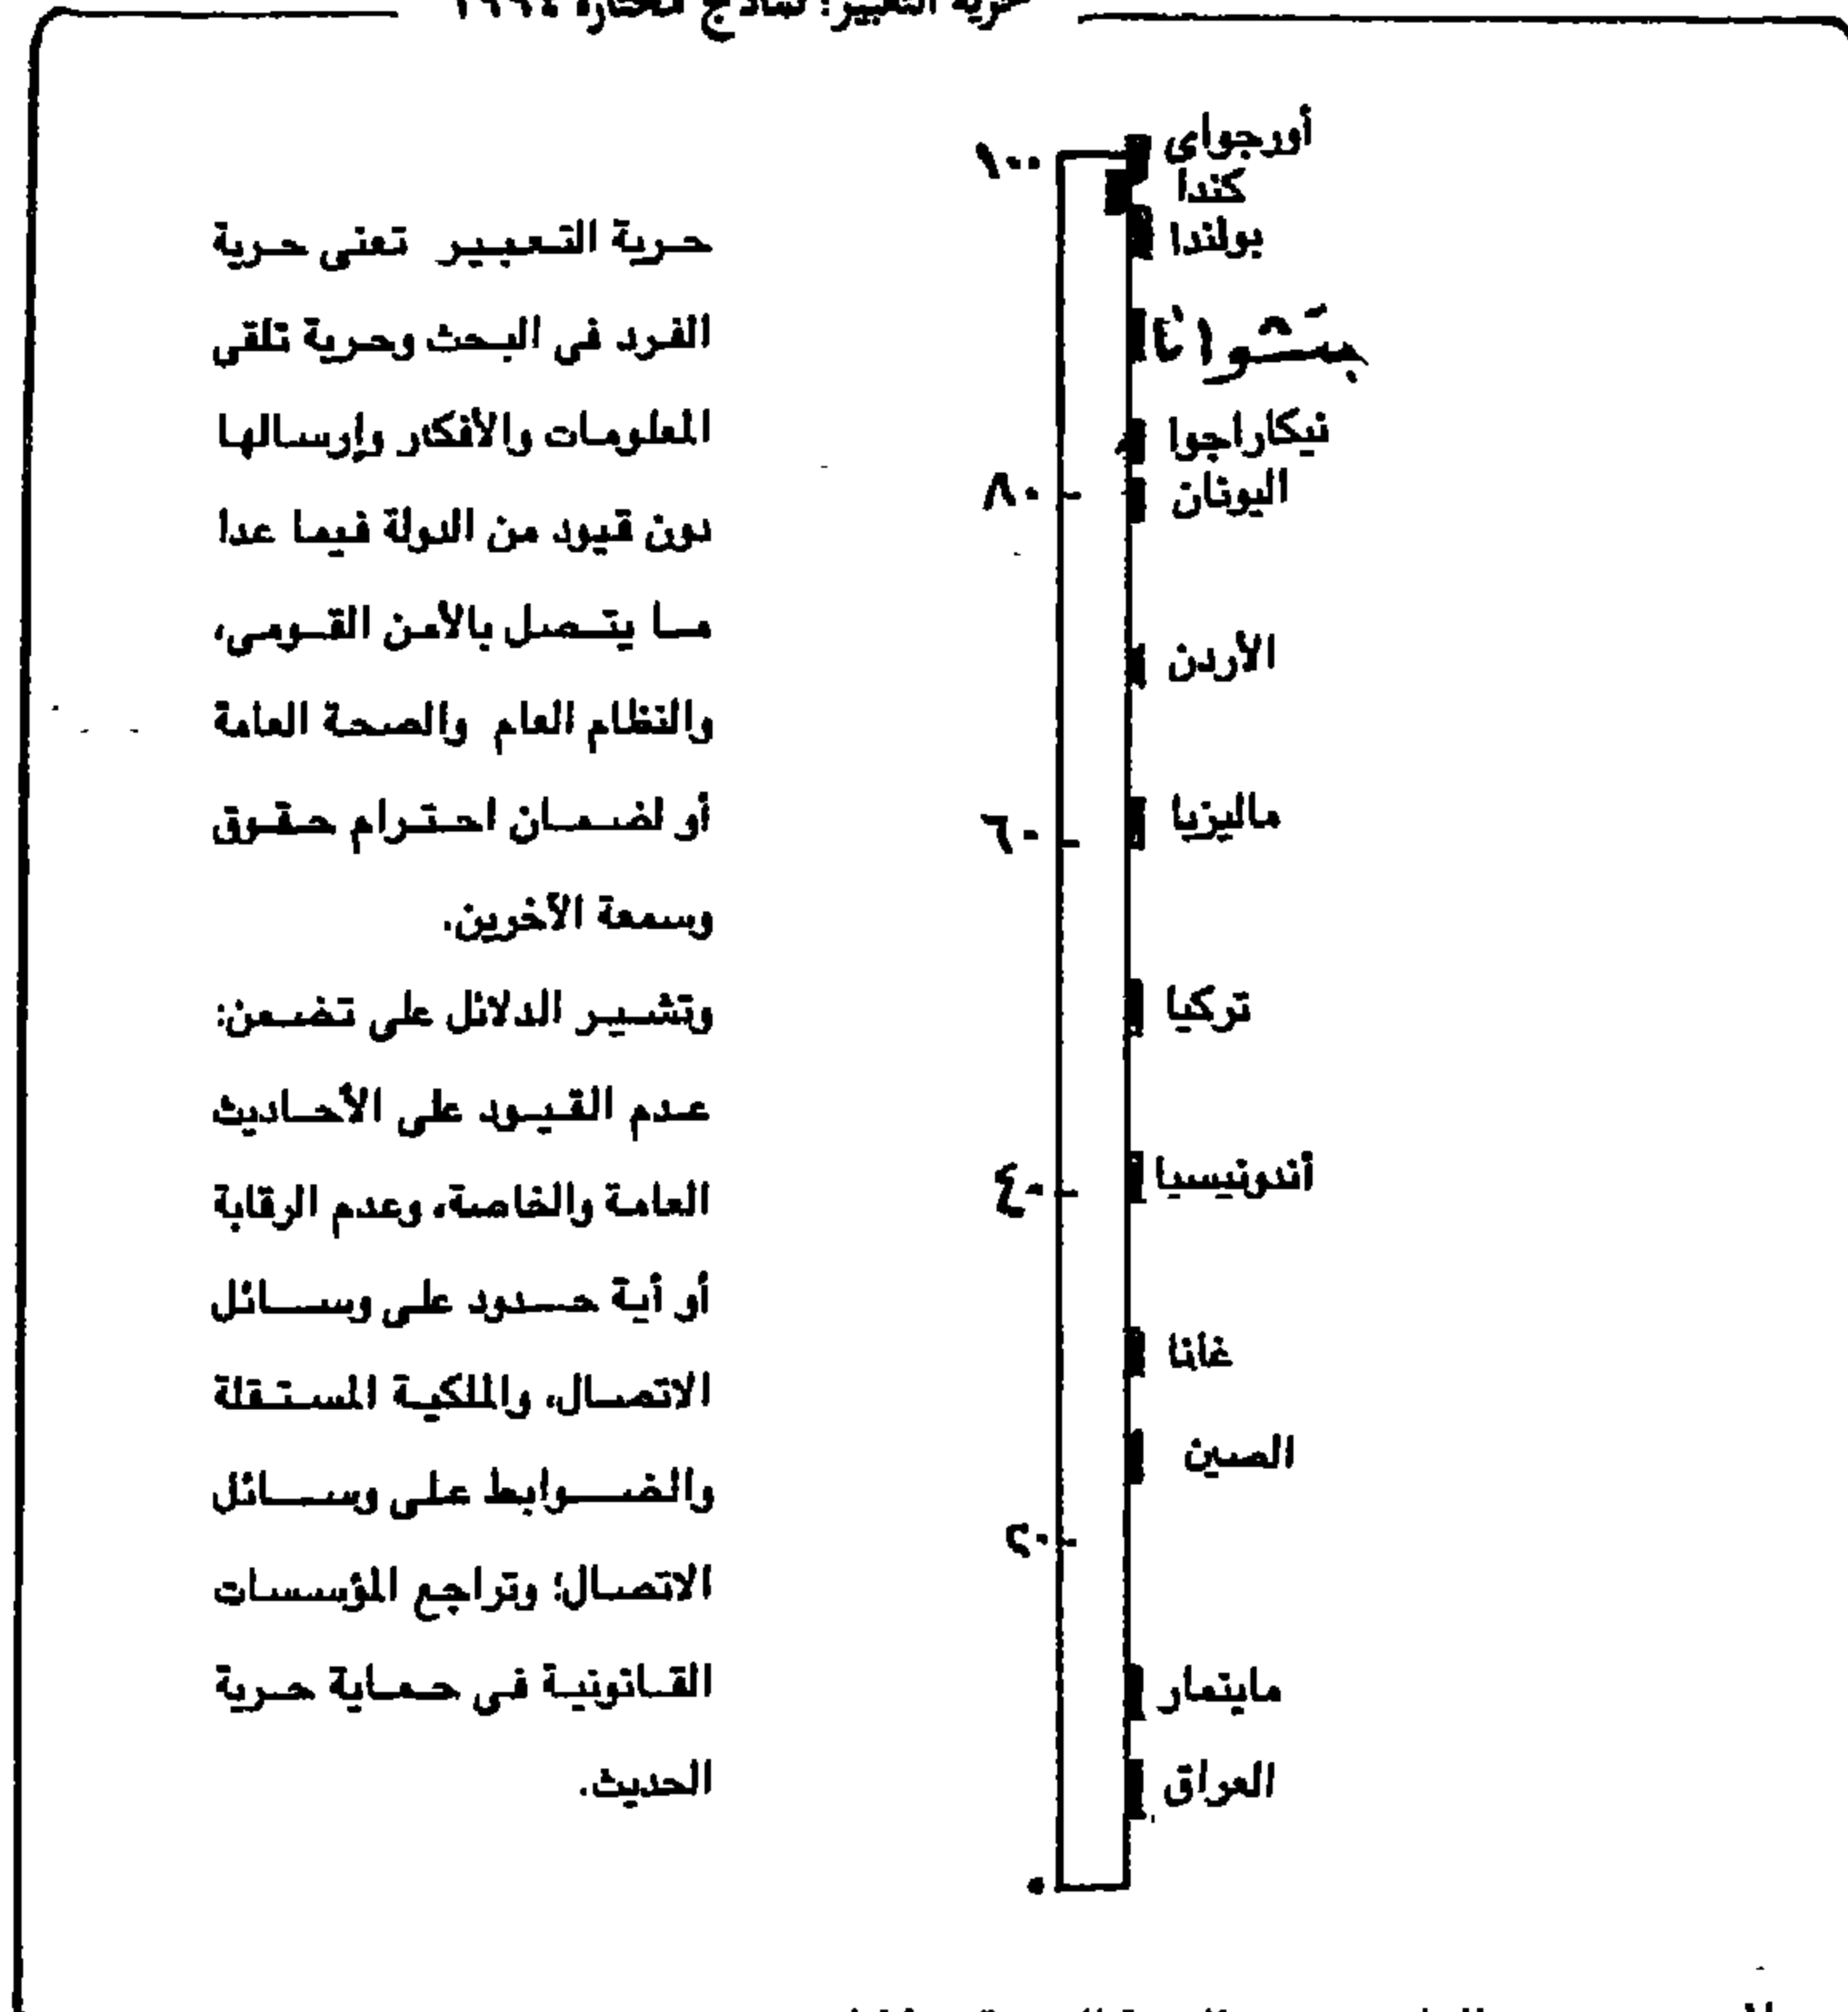 حرية التعبير: نماذج مختارة ١٩٩٤
أورجواى
كندا
بولندا
بتسوانا
نيكاراجوا
اليونان
الأردن
ماليزيا
تركيا
أندونيسيا
غانا
الصين
ماينمار
العراق
١٠٠
٨٠
٦٠
٤٠
٢٠
٠
حرية التعبير تعنى حرية
الفرد فى البحث وحرية تلقى
المعلومات والأفكار وإرسالها
دون قيود من الدولة فيما عدا
ما يتصل بالأمن القومى،
والنظام العام والصحة العامة
أو لضمان احترام حقوق
وسمعة الآخرين.
وتشير الدلائل على تضمن:
عدم القيود على الأحاديث
العامة والخاصة، وعدم الرقابة
أو أية حدود على وسائل
الاتصال، والملكية المستقلة
والضوابط على وسائل
الاتصال؛ وتراجع المؤسسات
القانونية فى حماية حرية
الحديث.